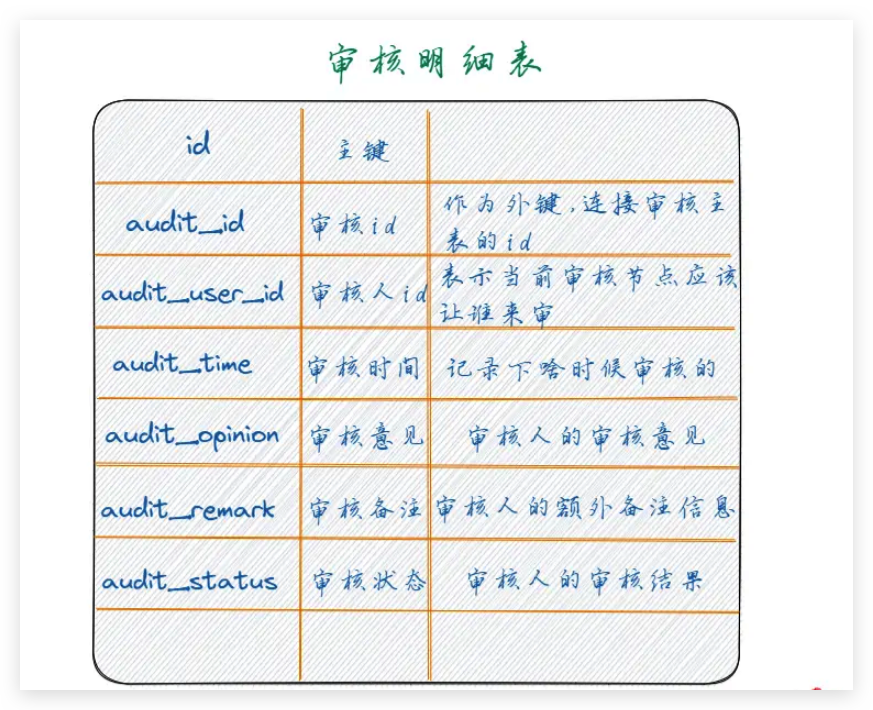 审核明细表
id 主键
audit_id 审核id 作为外键,连接审核主
表的id
audit_user_id 审核人id 表示当前审核节点应该
让谁来审
audit_time 审核时间 记录下啥时候审核的
audit_opinion 审核意见 审核人的审核意见
audit_remark 审核备注 审核人的额外备注信息
audit_status 审核状态 审核人的审核结果